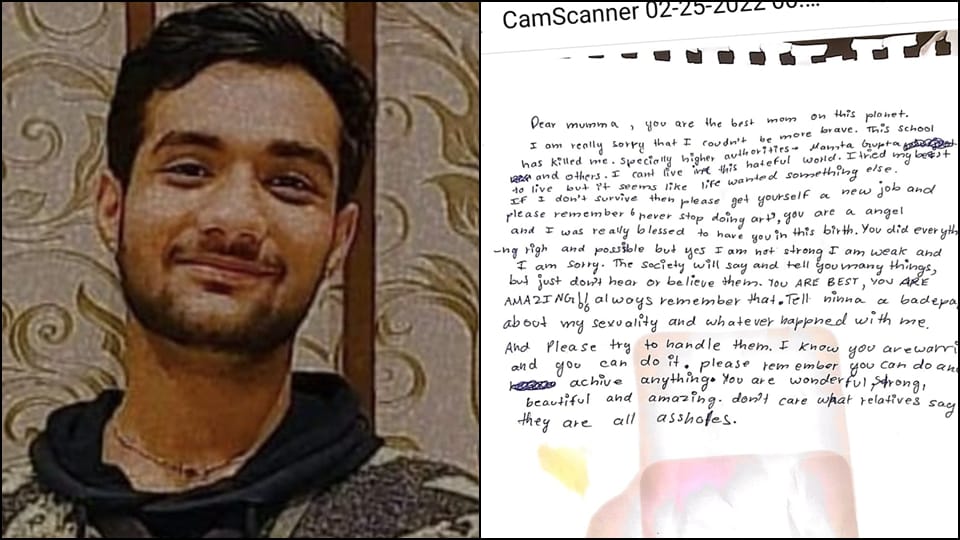 CamScanner 02-25-2022
Dear mumma, you are the best mom on this planet.
I am really sorry that I coudn't be more brave. This school
has killed me. Specially higher authorities- Mamta Gupta
and others. I cant live in this hateful world. I tried my best
to live but it seems like life wanted something else.
If I don't survive then please get yourself a new job and
please remember never stop doing art, you are a angel
and I was really blessed to have you in this birth. You did everyth
-ng righ and possible but yes I am not strong I am weak and
I am sorry. The society will say and tell you many things,
but just don't hear or believe them. YOU ARE BEST, YOU ARE
AMAZING!! always remember that. Tell ninna a badepa
about my sexuality and whatever happned with me.
And Please try to handle them. I know you are warri
and you can do it. please remember you can do an
achive anything. You are wonderful, strong,
beautiful and amazing. don't care what relatives say
they are all assholes.